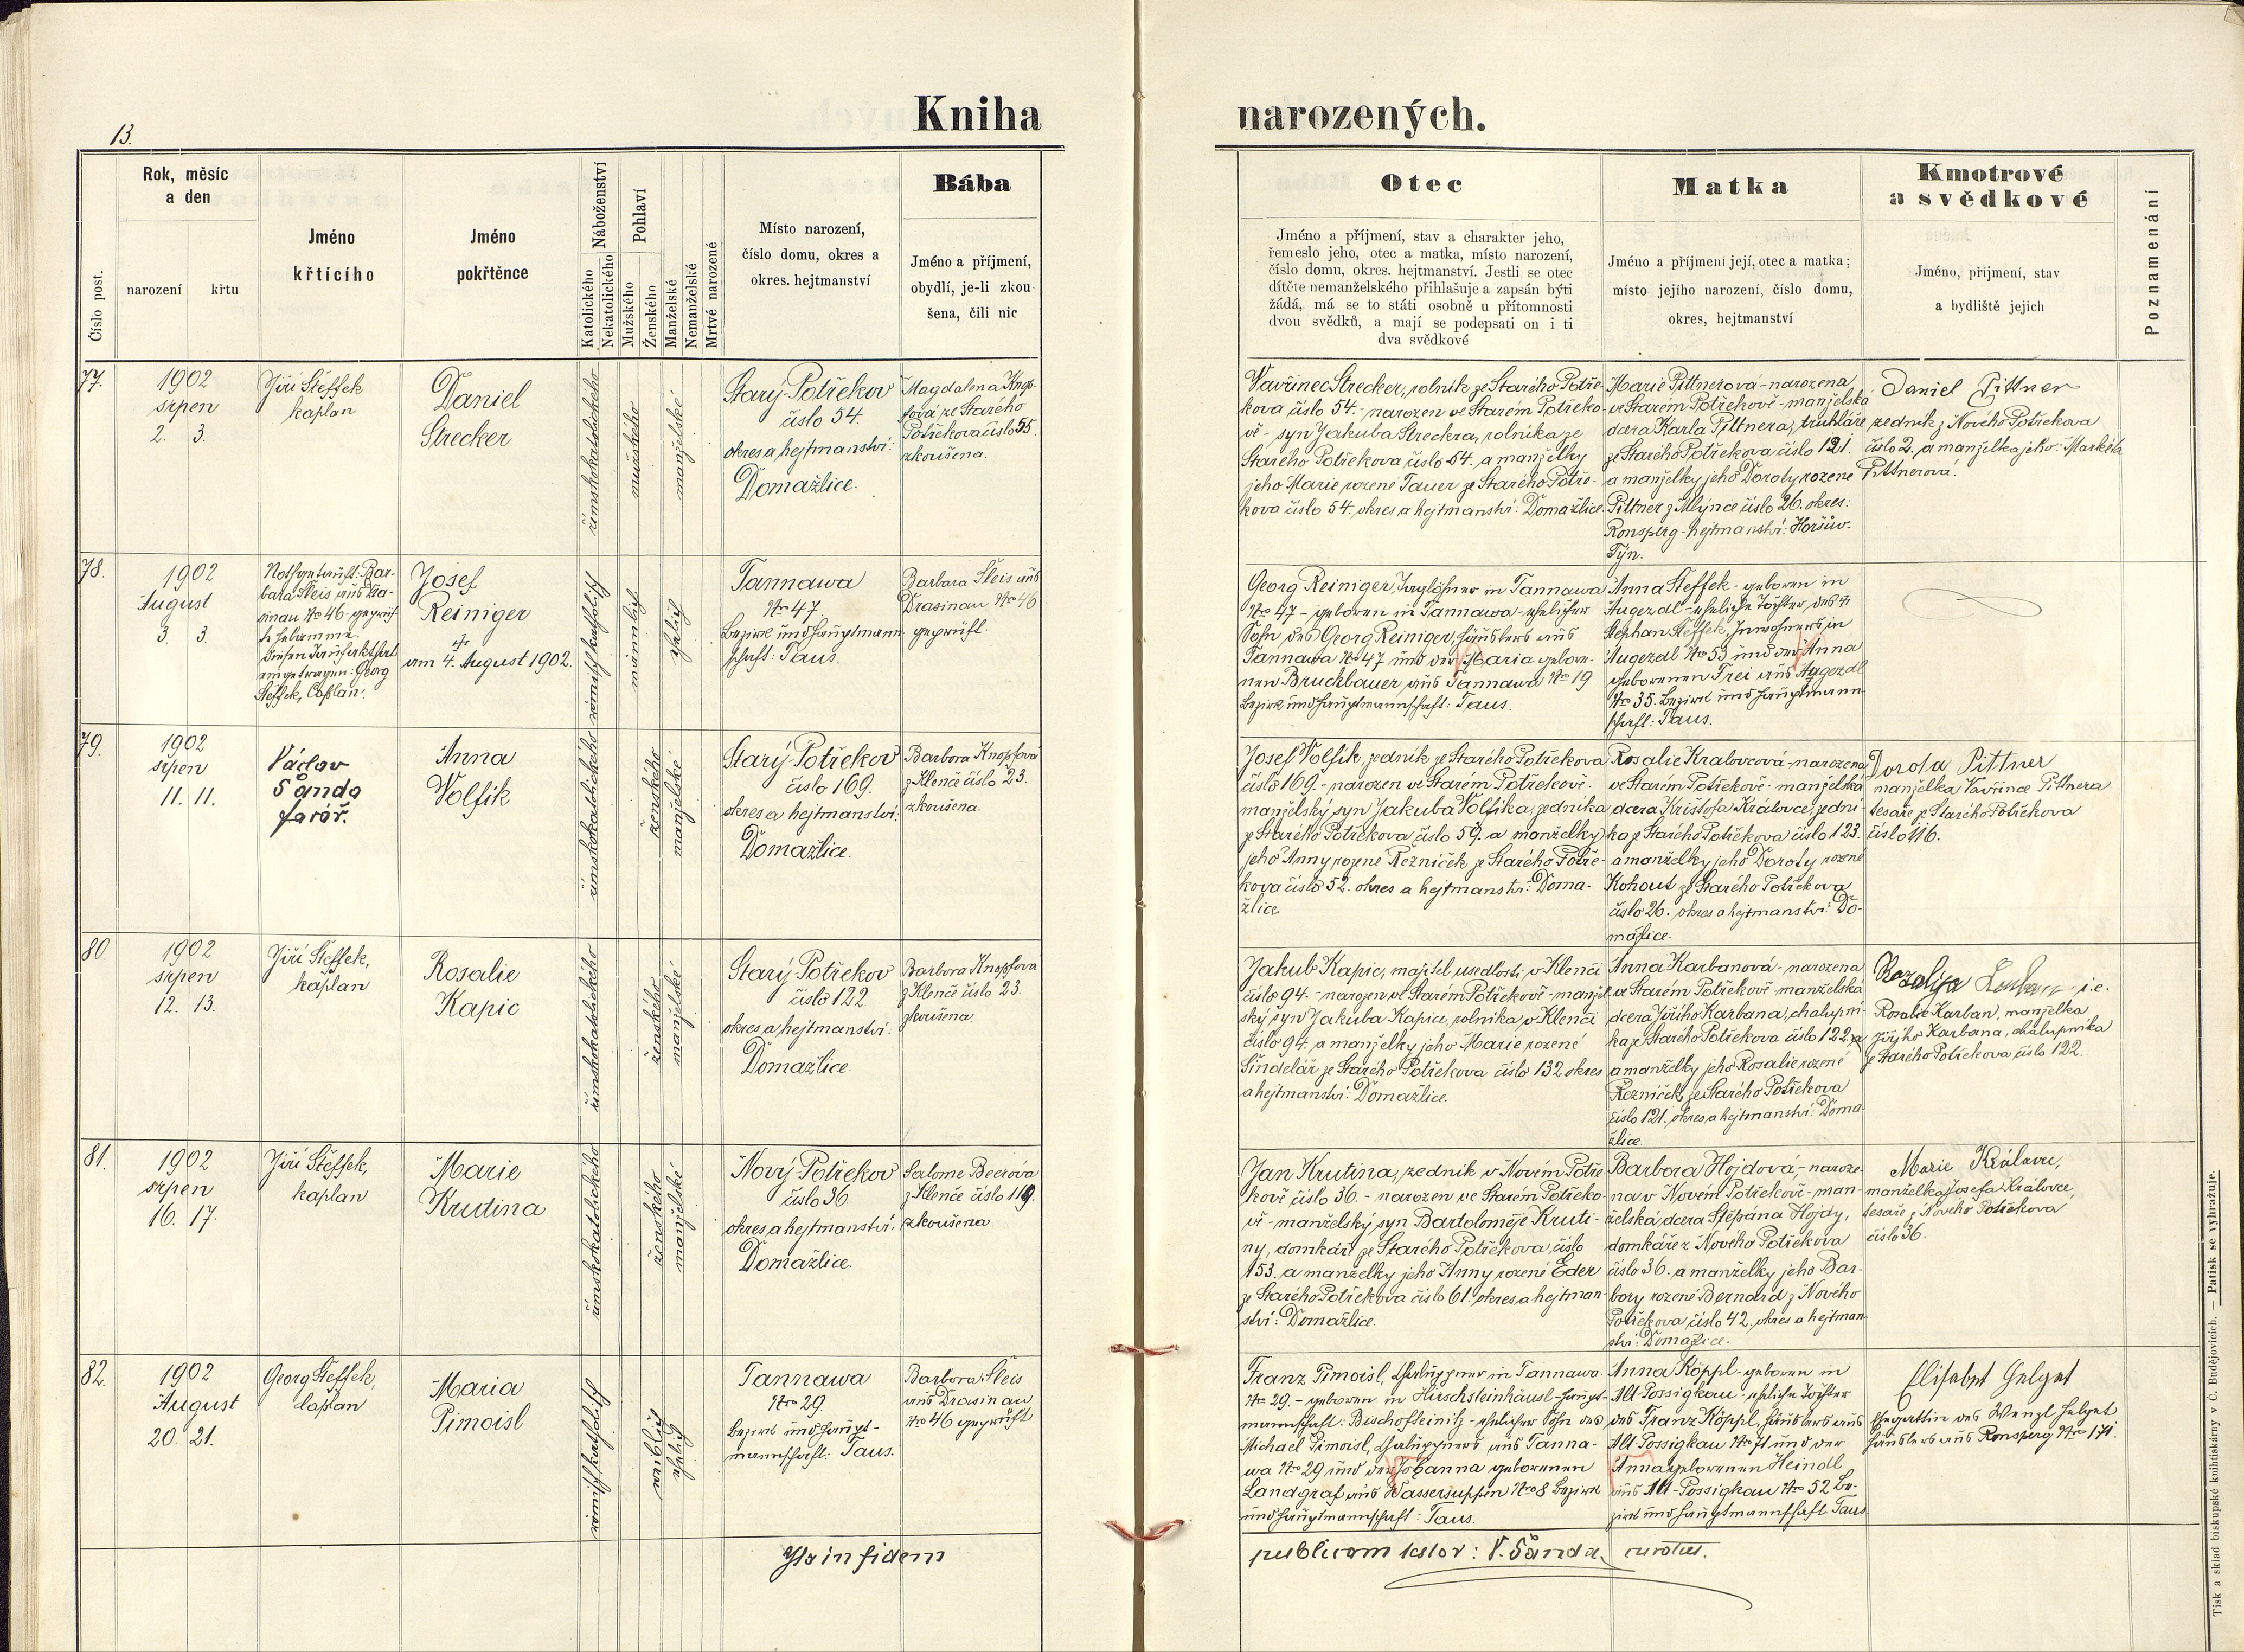 13.
Kniha narozených.
Číslo post.
Rok, měsíc
a den
narození
křtu
Jméno
křtícího
Jméno
pokřtěnce
Náboženství
Katolického
Nekatolického
Pohlaví
Mužského
Ženského
Manželské
Nemanželské
Mrtvě narozené
Místo narození,
číslo domu, okres a
okres. hejtmanství
Bába
Jméno a příjmení,
obydlí, je-li zkou
šena, čili nic
Otec
Jméno a příjmení, stav a charakter jeho,
řemeslo jeho, otec a matka, místo narození,
číslo domu, okres. hejtmanství. Jestli se otec
dítěte nemanželského přihlašuje a zapsán býti
žádá, má se to státi osobně u přítomnosti
dvou svědků, a mají se podepsati on i ti
dva svědkové
Matka
Jméno a příjmení její, otec a matka;
místo jejího narození, číslo domu,
okres, hejtmanství
Kmotrové
a svědkové
Jméno, příjmení, stav
a bydliště jejich
Poznamenání
77.
1902
srpen
2. 3.
Jiří Šteffek
kaplan
Daniel
Strecker
římskokatolického
mužského
manželské
Starý-Potřekov
číslo 54.
okres a hejtmanství:
Domažlice.
Magdalena Knop-
fová ze Starého
Potřekova číslo 55
zkoušena.
Vavřinec Strecker, rolník ze Starého Potře-
kova číslo 54. - narozen ve Starém Potřeko-
vě - syn Jakuba Streckra, rolníka ze
Starého Potřekova číslo 54. a manželky
jeho Marie rozené Tauer ze Starého Potře-
kova číslo 54. okres a hejtmanství: Domažlice.
Marie Pittnerová - narozena
ve Starém Potřekově - manželská
dcera Karla Pittnera, truhláře
ze Starého Potřekova číslo 121.
a manželky jeho Doroty rozené
Pittner z Mlýnce číslo 26. okres:
Ronsperg - hejtmanství: Horšův-
Týn.
Daniel Pittner
zedník z Nového Potřekova
číslo 2. a manželka jeho: Markéta
Pittnerová.
78.
1902
August
3. 3.
Nothgetauft: Bar-
bara Sleis aus Dra-
sinau No 46 - geprüf-
te Hebamme.
Diesen Taufakt hat
eingetragen: Georg
Steffek, Caplan.
Josef
Reiniger
†
am 4. August 1902.
römischkatholisch
männlich
ehelich
Tannawa
No 47.
Bezirk und Hauptmann-
schaft: Taus.
Barbara Sleis aus
Drasinau No 46
geprüft.
Georg Reiniger, Taglöhner in Tannawa
No 47 - geboren in Tannawa - ehelicher
Sohn des Georg Reiniger, Häuslers aus
Tannawa No 47 und der Maria gebore-
nen Bruckbauer aus Tannawa No 19
Bezirk und Hauptmannschaft: Taus.
Anna Steffek - geboren in
Augezdl - eheliche Tochter des †
Stephan Steffek, Inwohners in
Augezdl No 53 und der Anna
geborenen Frei aus Augezdl
No 35. Bezirk und Hauptmann-
schaft: Taus.
79.
1902
srpen
11. 11.
Václav
Šanda
farář.
Anna
Volfik
římskokatolického
ženského
manželské
Starý-Potřekov
číslo 169.
okres a hejtmanství:
Domažlice.
Barbora Knopfová
z Klenče číslo 23.
zkoušena.
Josef Volfik, zedník ze Starého Potřekova
číslo 169. - narozen ve Starém Potřekově -
manželský syn Jakuba Volfika, zedníka
ze Starého Potřekova číslo 59. a manželky
jeho Anny rozené Řezníček ze Starého Potře-
kova číslo 52. okres a hejtmanství: Doma-
žlice.
Rosalie Kralovcová - narozena
ve Starém Potřekově - manželská
dcera Kristofa Královce, zední-
ka ze Starého Potřekova číslo 123.
a manželky jeho Doroty rozené
Kohout ze Starého Potřekova
číslo 26. okres a hejtmanství: Do-
mažlice.
Dorota Pittner
manželka Vavřince Pittnera
tesaře ze Starého Potřekova
číslo 116.
80.
1902
srpen
12. 13.
Jiří Šteffek,
kaplan
Rosalie
Kapic
římskokatolického
ženského
manželské
Starý-Potřekov
číslo 122.
okres a hejtmanství:
Domažlice.
Barbora Knopfová
z Klenče číslo 23.
zkoušena.
Jakub Kapic, majitel usedlosti v Klenči
číslo 94. - narozen ve Starém Potřekově - manžel-
ský syn Jakuba Kapice, rolníka v Klenči
číslo 94. a manželky jeho Marie rozené
Šindelář ze Starého Potřekova číslo 132 okres
a hejtmanství: Domažlice.
Anna Karbanová - narozena
ve Starém Potřekově - manželská
dcera Jiřího Karbana, chalupní-
ka ze Starého Potřekova číslo 122.
a manželky jeho Rosalie rozené
Řezníček ze Starého Potřekova
číslo 121. okres a hejtmanství: Doma-
žlice.
Rozalija i.e.
Rosalie Karban, manželka
Jiřího Karbana, chalupníka
ze Starého Potřekova číslo 122.
81.
1902
srpen
16. 17.
Jiří Šteffek,
kaplan
Marie
Krutina
římskokatolického
ženského
manželské
Nový-Potřekov
číslo 36.
okres a hejtmanství:
Domažlice.
Salome Beerova
z Klenče číslo 119.
zkoušena
Jan Krutina, zedník v Novém Potře-
kově číslo 36. - narozen ve Starém Potřeko-
vě - manželský syn Bartoloměje Kruti-
ny, domkáře ze Starého Potřekova, číslo
153. a manželky jeho Anny rozené Eder
ze Starého Potřekova číslo 61. okres a hejtman-
ství: Domažlice.
Barbora Hojdová, - naroze-
na v Novém Potřekově - man-
želská dcera Štěpána Hojdy,
domkáře z Nového Potřekova
číslo 36. a manželky jeho Bar-
bory rozené Bernard z Nového
Potřekova číslo 42. okres a hejtman-
ství: Domažlice.
Marie
manželka Josefa Královce,
tesaře z Nového Potřekova
číslo 36.
82.
1902
August
20. 21.
Georg Steffek,
Caplan
Maria
Pimoisl
römischkatholisch
weiblich
ehelich
Tannawa
No 29.
Bezirk und Haupt-
mannschaft: Taus.
Barbora Sleis
aus Drasinau
No 46 geprüft
Franz Pimoisl, Chaluppner in Tannawa
No 29. - geboren in Hirschsteinhäusl - Haupt-
mannschaft: Bischofteinitz - ehelicher Sohn des
Michael Pimoisl, Chaluppners aus Tanna-
wa No 29 und der Johanna geborenen
Landgraf aus Wassersuppen No 8 Bezirk
und Hauptmannschaft: Taus.
Anna Köppl - geboren in
Alt-Possigkau - eheliche Tochter
des Franz Köppl, Häuslers aus
Alt-Possigkau No 71 und der
Anna geborenen Heindl
aus Alt-Possigkau No 52 Be-
zirk und Hauptmannschaft Taus.
Elisabet Helget
Ehegattin des Wenzl Helget
Häuslers aus Ronsperg No 171.
Ita in fidem publicam testor: V. Šanda, curatus.
Tisk a sklad biskupské knihtiskárny v Č. Budějovicích. — Patisk se vyhražuje.